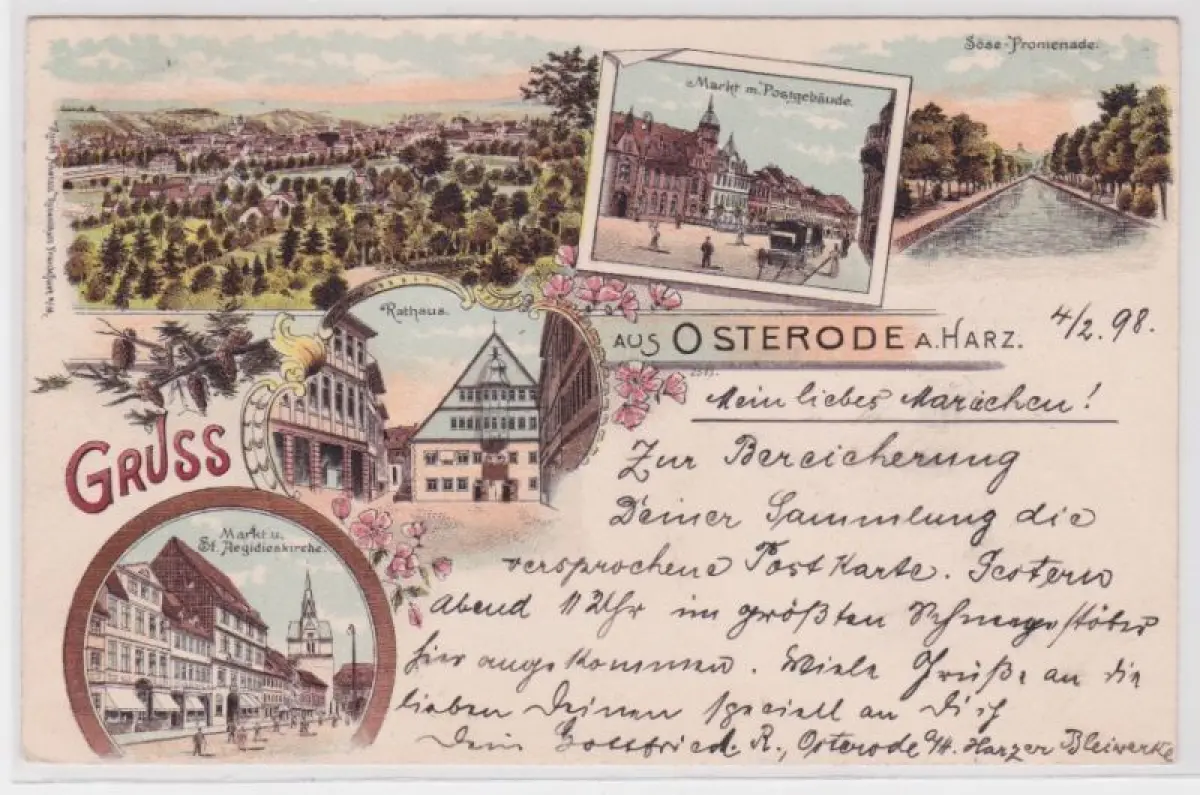 Söse-Promenade.
Markt m. Postgebäude.
Rathaus.
GRUSS
AUS OSTERODE A. HARZ.
4/2. 98.
Mein liebes Mariechen!
Zur Bereicherung
Deiner Sammlung die
versprochene Post Karte. Gestern
Abend 11 Uhr im größten Schneegestöber
hier angekommen. Viele Grüße an die
lieben Deinen speciell an Dich
Dein Gottfried. R., Osterode a/H. Harzer Bleiwerke
Markt u.
St. Aegidienkirche.